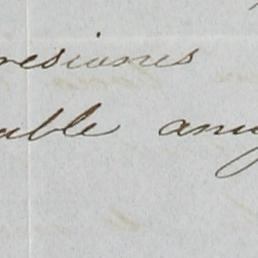 resiones
able amig